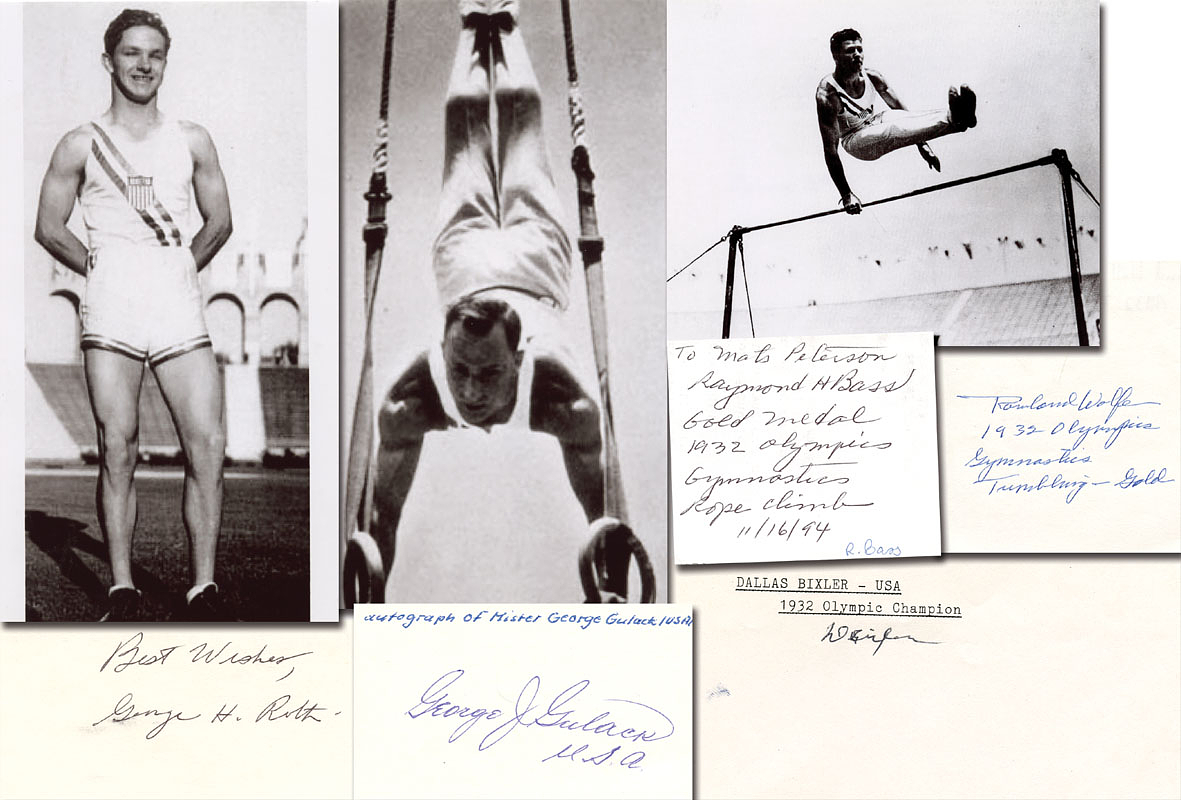 To Mats Peterson
Raymond H Bass
Gold medal
1932 Olympics
Gymnastics
Rope climb
11/16/94
R. Bass
Rowland Wolfe
1932 Olympics
Gymnastics
Tumbling - Gold
DALLAS BIXLER - USA
1932 Olympic Champion
autograph of Mister George Gulack (USA)
George J Gulack
U.S.A.
Best Wishes,
George H. Roth